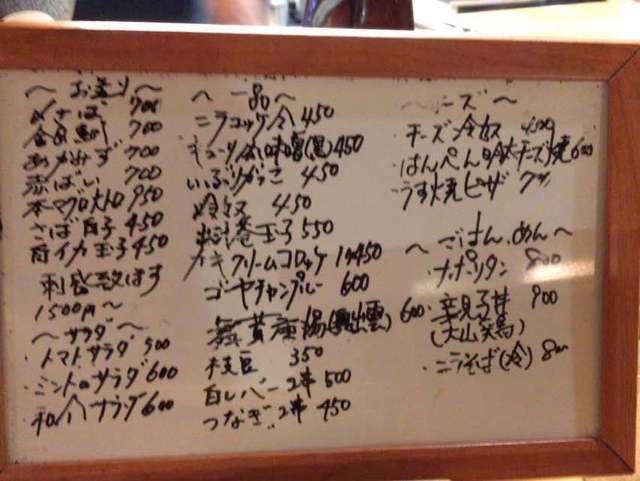 〜お造り〜
〆さば 700
金目鯛 700
あかみず 700
赤ばい 700
本マグロ大トロ 950
さば白子 450
白イカ玉子 450
刺盛
1500円〜
〜サラダ〜
トマトサラダ 500
ミントのサラダ 600
和介サラダ 600
〜一品〜
ニラコッケ 450
味噌 450
いぶりがっこ 450
冷奴 450
玉子 550
カキクリームコロッケ 1ヶ450
ゴヤチャンプルー 600
舞茸唐揚(奥出雲) 600
枝豆 350
白レバー 2本 500
つなぎ 2本 450
〜チーズ〜
チーズ冷奴 400
はんぺん明太チーズ焼 600
うす焼ピザ
〜ごはん、めん〜
・ナポリタン 800
・親子丼 900
(大山鶏)
・ニラそば(冷) 800